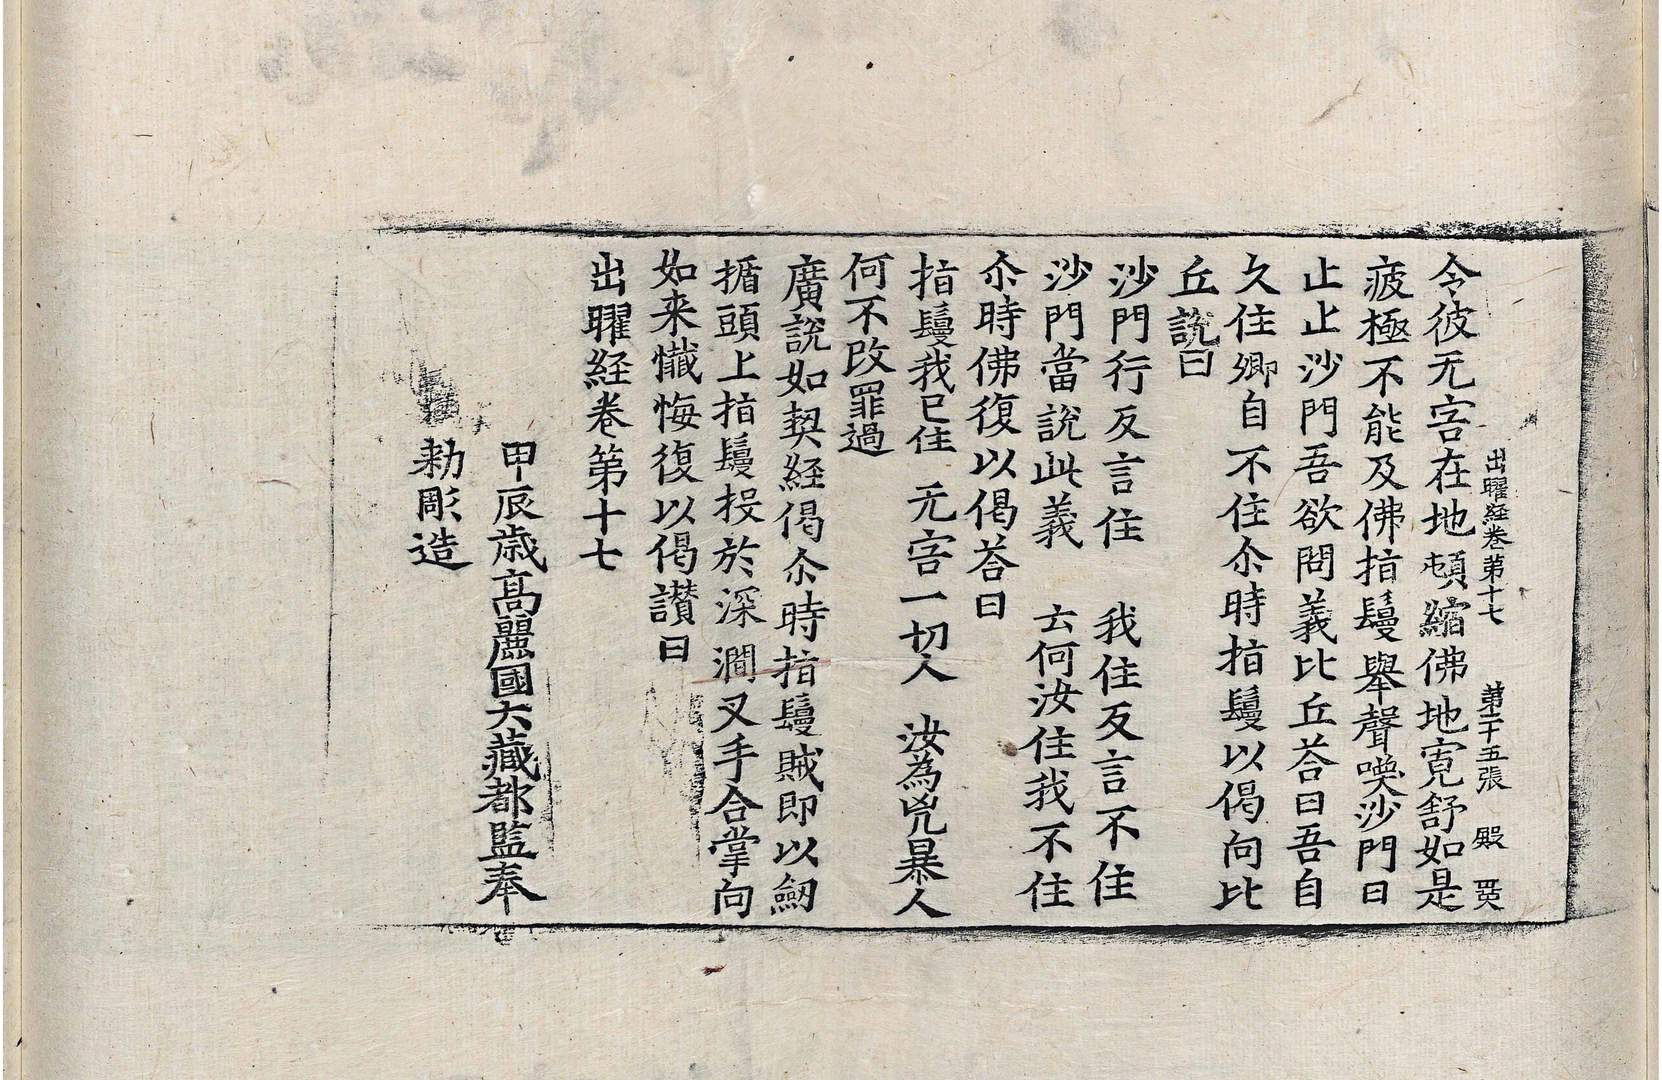 出曜経卷第十七 第二十五張 殿 㒰
令彼无害在地頓縮佛地寛舒如是
疲極不能及佛指鬘舉聲喚沙門曰
止止沙門吾欲問義比丘荅曰吾自
久住卿自不住尒時指鬘以偈向比
丘說曰
沙門行反言住 我住反言不住
沙門當說此義 云何汝住我不住
尒時佛復以偈荅曰
指鬘我已住 无害一切人 汝為兇暴人
何不改罪過
廣說如契経偈尒時指鬘賊即以劒
揗頭上指鬘投於深澗叉手合掌向
如来懴悔復以偈讃曰
出曜経卷第十七
甲辰歳髙麗國大藏都監奉
勅彫造